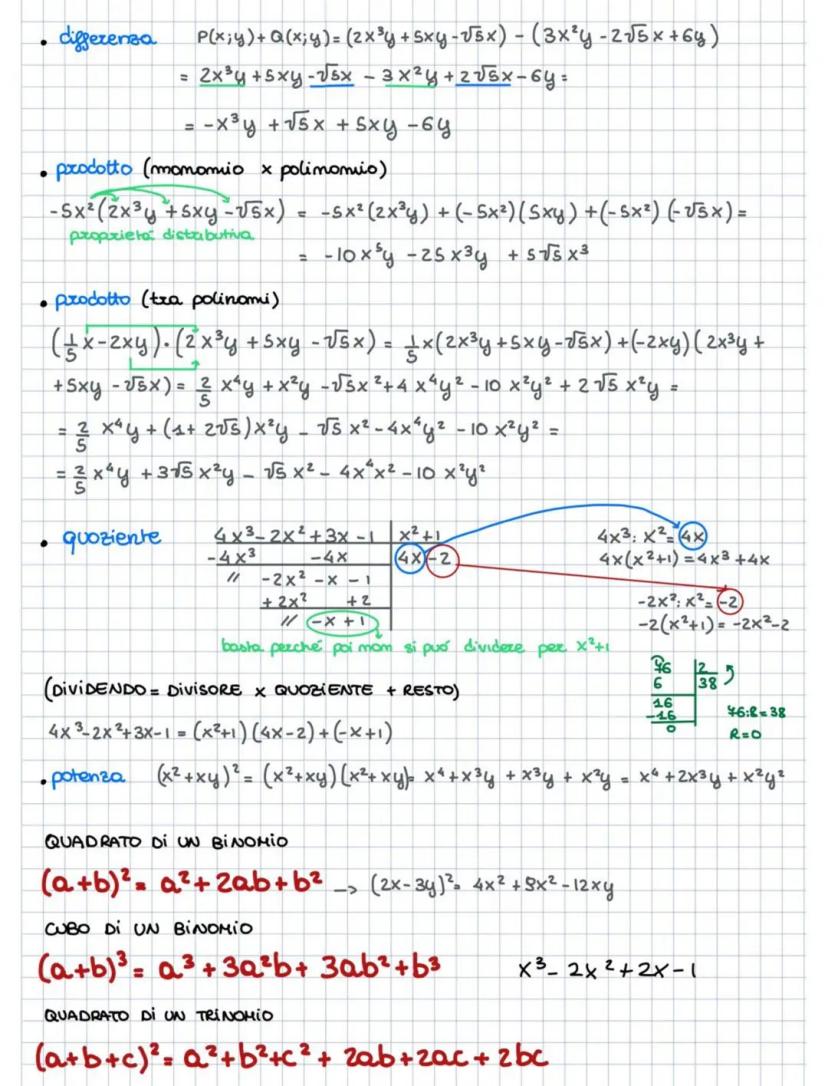 • differenza P(x;y)+Q(x;y)=(2x³y+5xy-√5x) - (3x²y-2√5x+6y)
= 2x³y+5xy-√5x - 3x²y+2√5x-6y=
= -x³y +√5x + 5xy -6y
• prodotto (monomio x polinomio)
-5x²(2x³y +5xy-√5x) = -5x²(2x³y) + (-5x²)(5xy) +(-5x²)(-√5x)=
proprietà distributiva
= -10x⁵y -25x³y + 5√5x³
• prodotto (tra polinomi)
(1/5x-2xy)·(2x³y+5xy-√5x) = 1/5x(2x³y+5xy-√5x)+(-2xy)(2x³y+
+5xy-√5x)= 2/5 x⁴y+x²y-√5x²+4x⁴y²-10x²y²+2√5x²y =
= 2/5 x⁴y+(1+2√5)x²y-√5x²-4x⁴y²-10x²y² =
= 2/5 x⁴y+3√5x²y-√5x²-4x⁴x²-10x²y²
• quoziente 4x³-2x²+3x-1 x²+1 4x³:x²=4x
-4x³ -4x 4x-2 4x(x²+1)=4x³+4x
// -2x²-x-1
+2x² +2 -2x²:x²=-2
// -x+1 -2(x²+1)=-2x²-2
basta perché poi non si può dividere per x²+1
76 2
6 38
16
-16 76:2=38
0 R=0
(DIVIDENDO = DIVISORE x QUOZIENTE + RESTO)
4x³-2x²+3x-1=(x²+1)(4x-2)+(-x+1)
• potenza (x²+xy)²=(x²+xy)(x²+xy)= x⁴+x³y+x³y+x²y = x⁴+2x³y+x²y²
QUADRATO DI UN BINOMIO
(a+b)²= a²+2ab+b² -> (2x-3y)²= 4x²+9x²-12xy
CUBO DI UN BINOMIO
(a+b)³= a³+3a²b+3ab²+b³ x³-2x²+2x-1
QUADRATO DI UN TRINOMIO
(a+b+c)²= a²+b²+c²+2ab+2ac+2bc